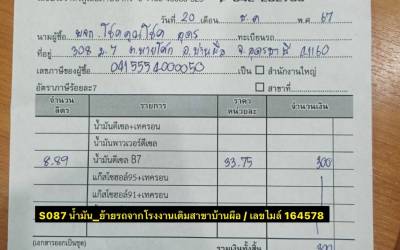 วันที่ 20 เดือน ธ.ค พ.ศ 67
นามผู้ซื้อ หจก. โชคคูณโชค อุดร ทะเบียนรถ
ที่อยู่ 308 ม.7 ต.หายโศก อ.บ้านผือ จ.อุดรธานี 41160
เลขภาษีของผู้ซื้อ 0415554000050 เป็น สำนักงานใหญ่
อัตราภาษีร้อยละ7 สาขาที่
จำนวนลิตร รายการ ราคาหน่วยละ จำนวนเงิน
น้ำมันดีเซล+เทครอน
น้ำมันพาวเวอร์ดีเซล
8.89 น้ำมันดีเซล B7 33.75 300
แก๊สโซฮอล์95+เทครอน
แก๊สโซฮอล์91+เทครอน
S087 น้ำมัน_ย้ายรถจากโรงงานเดิมสาขาบ้านผือ / เลขไมล์ 164578
(เอกสารออกเป็นชุด) รวมเงินทั้งสิ้น 300